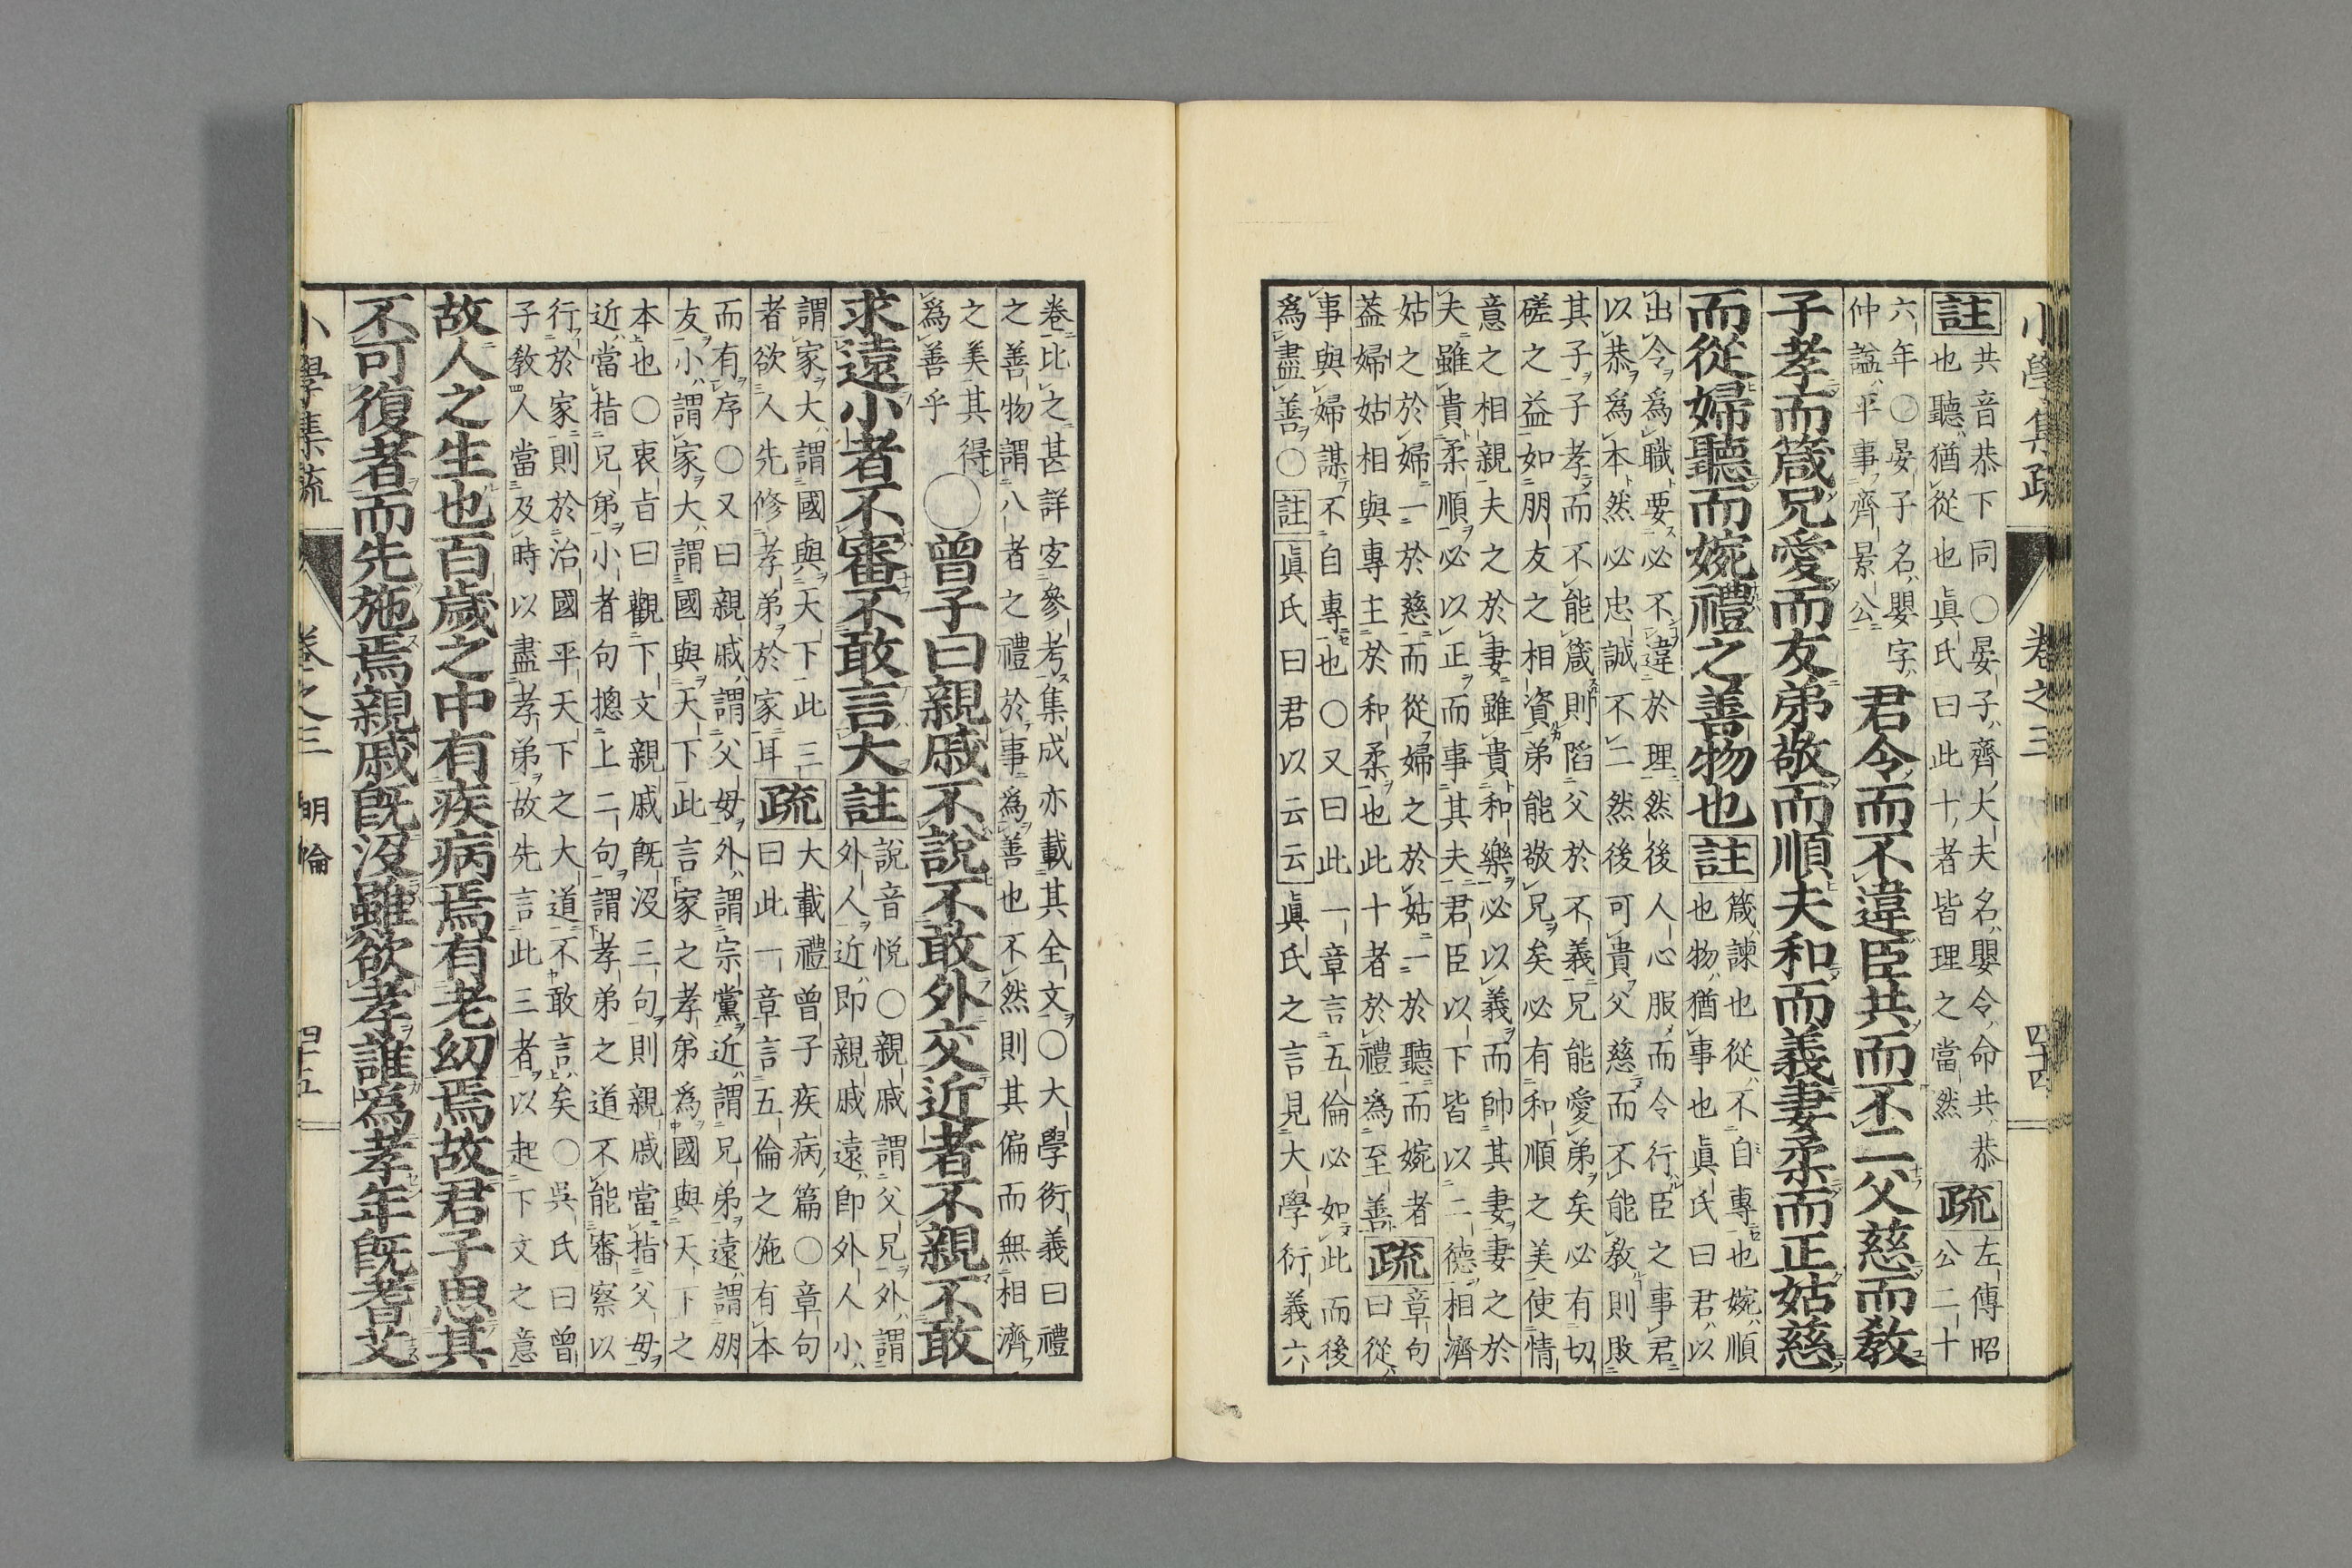 小學集疏 卷之三 四十四
註 共音恭下同○晏子齊大夫名嬰令命共恭
也聽猶從也眞氏曰此十者皆理之當然
疏 左傳昭
公二十
六年○晏子名嬰字
仲謚平事齊景公
君令而不違臣共而不二父慈而教
子孝而箴兄愛而友弟敬而順夫和而義妻柔而正姑慈
而從婦聽而婉禮之善物也 註 箴諫也從不自專也婉順
也物猶事也眞氏曰君以
出令爲職要必不違於理然後人心服而令行臣之事君
以恭爲本然必忠誠不二然後可貴父慈而不能教則敗
其子子孝而不能箴則陷父於不義兄能愛弟矣必有切
磋之益如朋友之相資弟能敬兄矣必有和順之美使情
意之相親夫之於妻雖貴和樂必以義而帥其妻妻之於
夫雖貴柔順必以正而事其夫君臣以下皆以二德相濟
姑之於婦一於慈而從婦之於姑一於聽而婉者
葢婦姑相與專主於和柔也此十者於禮爲至善
疏 章句
曰從
事與婦謀不自專也○又曰此一章言五倫必如此而後
爲盡善○註眞氏曰君以云云眞氏之言見大學衍義六
卷比之甚詳宜參考集成亦載其全文○大學衍義曰禮
之善物謂八者之禮於事爲善也不然則其偏而無相濟
之美其得
爲善乎
○曾子曰親戚不說不敢外交近者不親不敢
求遠小者不審不敢言大 註 說音悦○親戚謂父兄外謂
外人近即親戚遠即外人小
謂家大謂國與天下此三
者欲人先修孝弟於家耳
疏 大載禮曾子疾病篇○章句
曰此一章言五倫之施有本
而有序○又曰親戚謂父母外謂宗黨近謂兄弟遠謂朋
友小謂家大謂國與天下此言家之孝弟為國與天下之
本也○衷旨曰觀下文親戚旣沒三句則親戚當指父母
近當指兄弟小者句摠上二句謂孝弟之道不能審察以
行於家則於治國平天下之大道不敢言矣○吳氏曰曾
子教人當及時以盡孝弟故先言此三者以起下文之意
故人之生也百歲之中有疾病焉有老幼焉故君子思其
不可復者而先施焉親戚旣沒雖欲孝誰爲孝年旣耆艾
小學集疏 卷之三 明倫 四十五